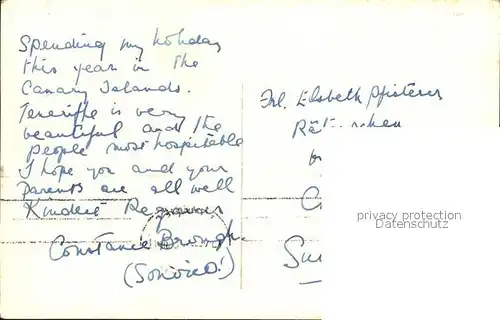 Spending my holiday
this year in the
Canary Islands.
Teneriffe is very
beautiful and the
people most hospitable
I hope you and your
parents are all well
Kindest Regards
Constance
Frl. Elsbeth Pfisterer
privacy protection
Datenschutz